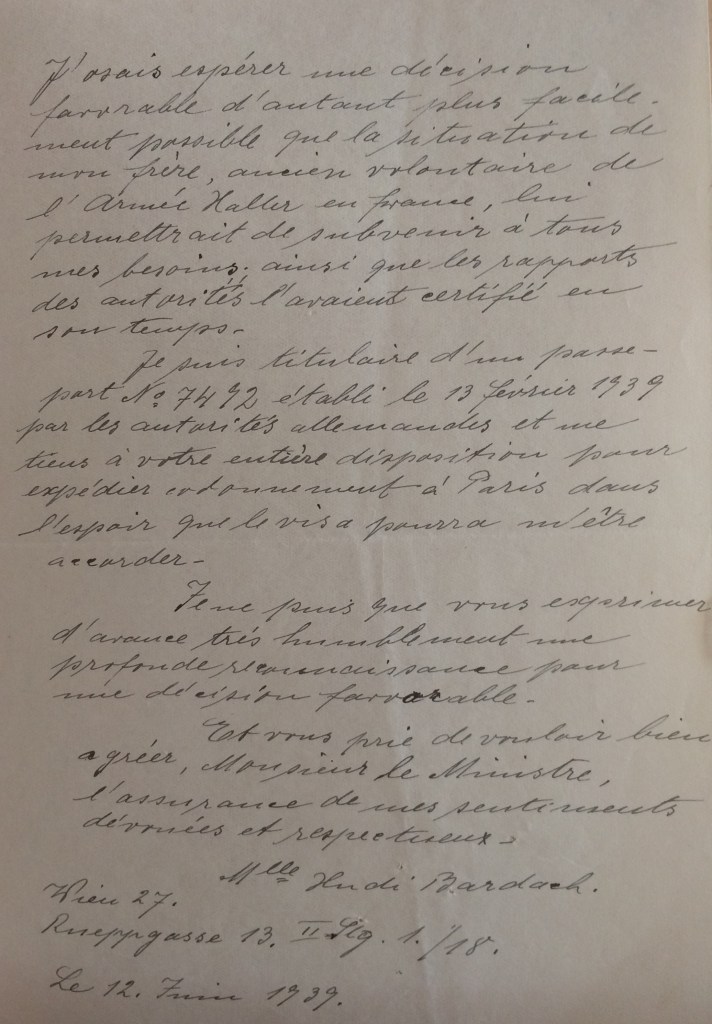 J'osais espérer une décision
favorable d'autant plus facile-
ment possible que la situation de
mon frère, ancien volontaire de
l'Armée Haller en france, lui
permettrait de subvenir à tous
mes besoins; ainsi que les rapports
des autorités l'avaient certifié en
son temps-
Je suis titulaire d'un passe-
port No 7492 établi le 13 février 1939
par les autorités allemandes et me
tiens à votre entière disposition pour
expédier à Paris dans
l'espoir que le visa pourra m'être
accorder-
Je ne puis que vous exprimer
d'avance trés humblement une
profonde reconnaissance pour
une décision favorable-
Et vous prie de vouloir bien
agréer, Monsieur le Ministre,
l'assurance de mes sentiments
dévouées et respectueux-
Mlle Bardach.
Wien 27.
Rueppgasse 13. II Stg. 1./18.
Le 12. Juin 1939.